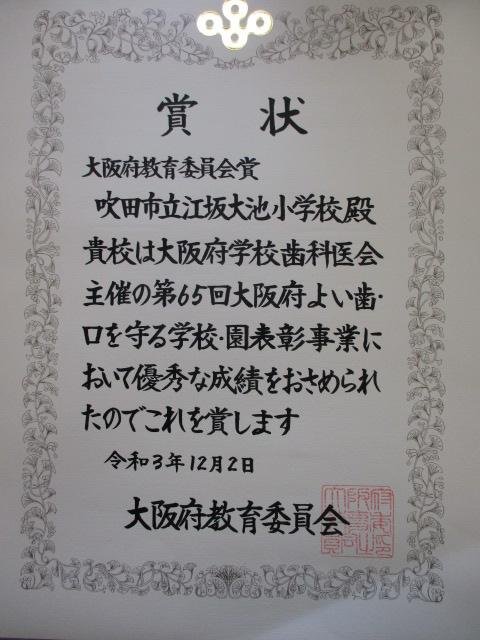 賞状
大阪府教育委員会賞
吹田市立江坂大池小学校殿
貴校は大阪府学校歯科医会
主催の第65回大阪府よい歯・
口を守る学校・園表彰事業に
おいて優秀な成績をおさめられ
たのでこれを賞します
令和3年12月2日
大阪府教育委員会